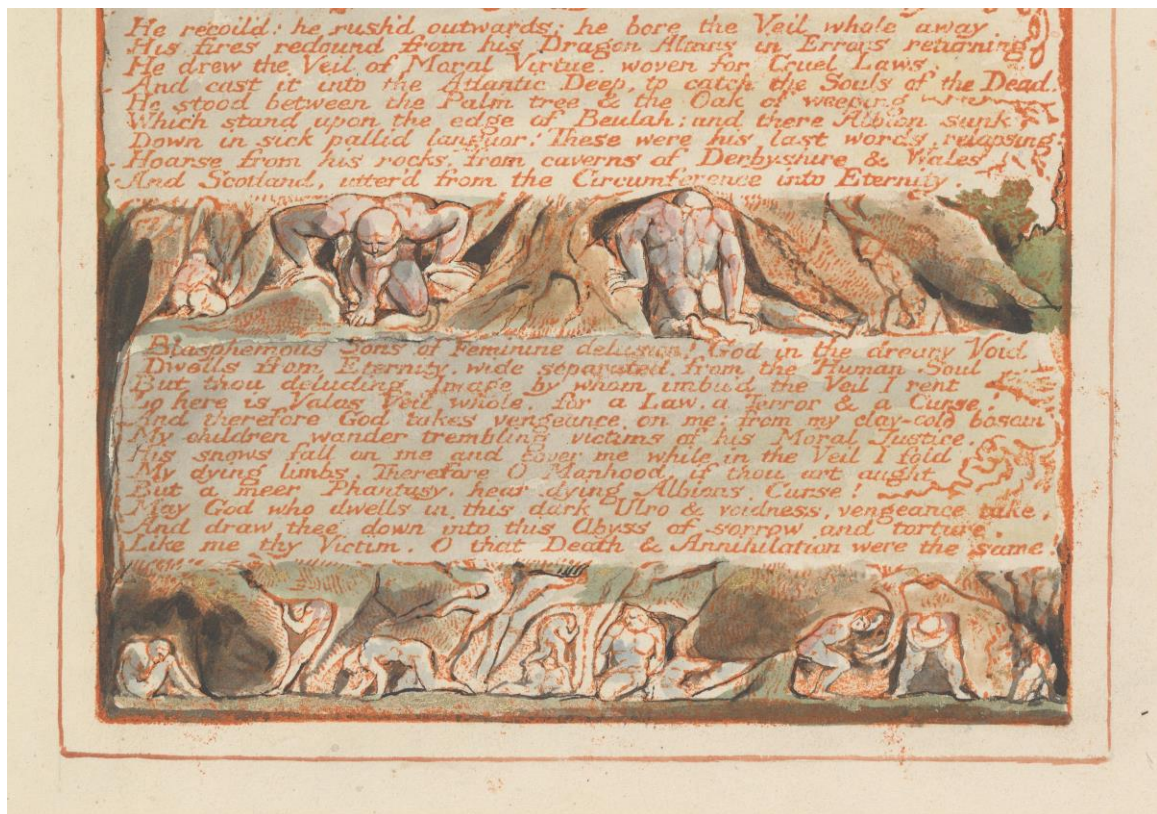 He recoild: he rush'd outwards; he bore the Veil whole away
His fires redound from his Dragon Altars in Errors returning.
He drew the Veil of Moral Virtue, woven for Cruel Laws,
And cast it into the Atlantic Deep, to catch the Souls of the Dead.
He stood between the Palm tree & the Oak of weeping
Which stand upon the edge of Beulah; and there Albion sunk
Down in sick pallid languor: These were his last words, relapsing!
Hoarse from his rocks, from caverns of Derbyshire & Wales
And Scotland, utter'd from the Circumference into Eternity.
Blasphemous Sons of Feminine delusion! God in the dreary Void
Dwells from Eternity, wide separated from the Human Soul
But thou deluding Image by whom imbu'd the Veil I rent
Lo here is Valas Veil whole, for a Law, a Terror & a Curse!
And therefore God takes vengeance on me: from my clay-cold bosom
My children wander trembling victims of his Moral Justice.
His snows fall on me and cover me, while in the Veil I fold
My dying limbs. Therefore O Manhood, if thou art aught
But a meer Phantasy, hear dying Albions Curse!
May God who dwells in this dark Ulro & voidness, vengeance take,
And draw thee down into this Abyss of sorrow and torture,
Like me thy Victim. O that Death & Annihilation were the same!